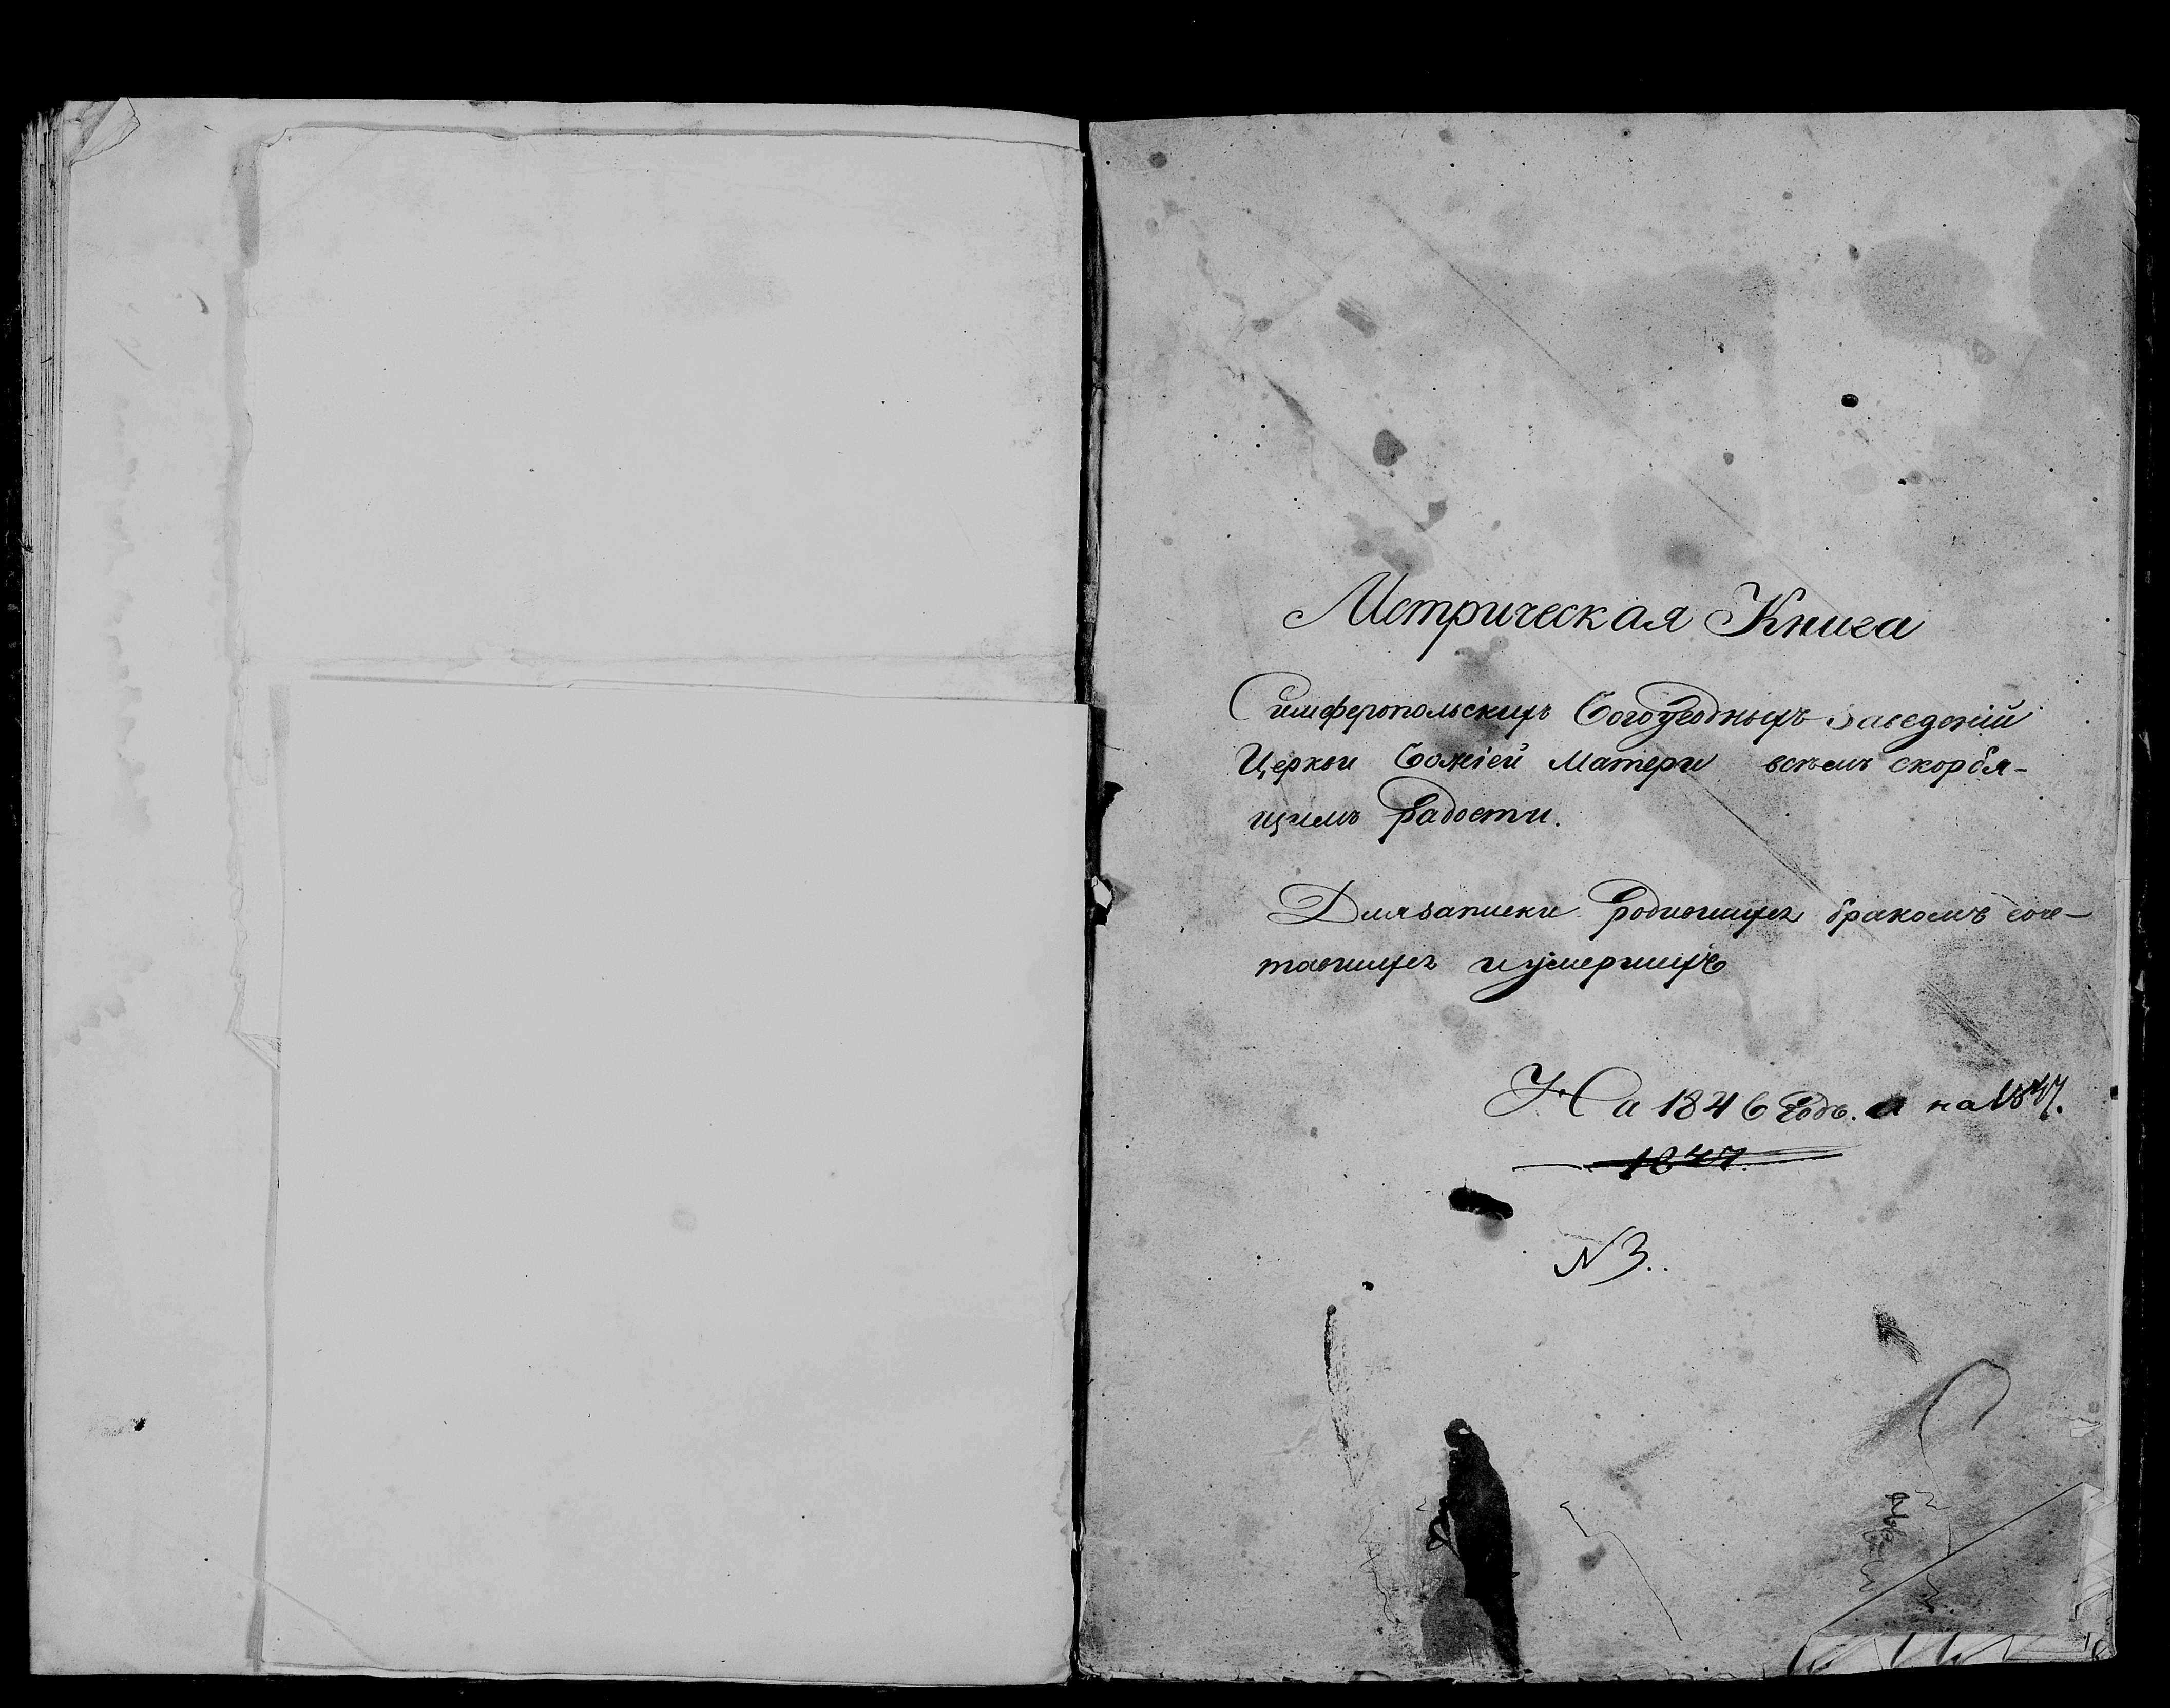 Метрическая Книга
Симферопольскихъ Богоугодныхъ Заведеній
Церкви Божіей Матери всѣмъ скорбя-
щимъ Радости.
Для записки родившихъ бракомъ соче-
тавшихъ и умершихъ
На 1846 Годъ. и на 1847.
1847.
N 3.